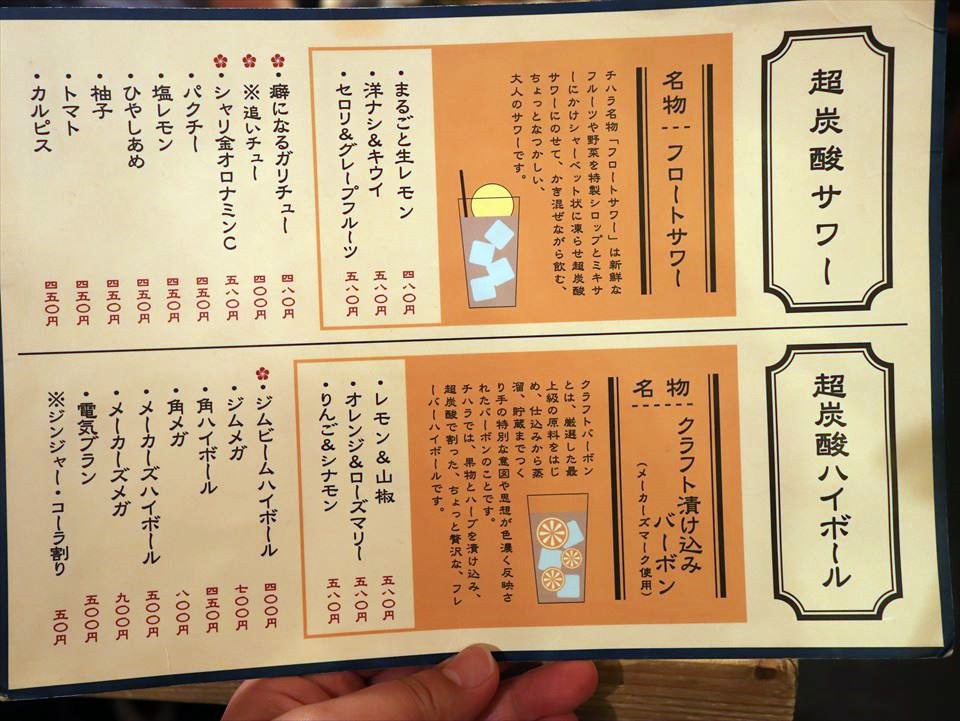 超炭酸サワー
名物
フロートサワー
チハラ名物「フロートサワー」は新鮮な
フルーツや野菜を特製シロップとミキサ
ーにかけシャーベット状に凍らせ超炭酸
サワーにのせて、かき混ぜながら飲む、
ちょっとなつかしい、
大人のサワーです。
・まるごと生レモン 四八〇円
・洋ナシ&キウイ 五八〇円
・セロリ&グレープフルーツ 五八〇円
・癖になるガリチュー 四八〇円
※追いチュー 四〇〇円
・シャリ金オロナミンC 五八〇円
・パクチー 四五〇円
・塩レモン 四五〇円
・ひやしあめ 四五〇円
・柚子 四五〇円
・トマト 四五〇円
・カルピス 四五〇円
超炭酸ハイボール
名物
クラフト漬け込み
バーボン
(メーカーズマーク使用)
クラフトバーボン
とは、厳選した最
上級の原料をはじ
め、仕込みから蒸
溜、貯蔵までつく
り手の特別な意図や思想が色濃く反映さ
れたバーボンのことです。
チハラでは、果物とハーブを漬け込み、
超炭酸で割った、ちょっと贅沢な、フレ
ーバーハイボールです。
・レモン&山椒 五八〇円
・オレンジ&ローズマリー 五八〇円
・りんご&シナモン 五八〇円
・ジムビームハイボール 四〇〇円
・ジムメガ 七〇〇円
・角ハイボール 四五〇円
・角メガ 八〇〇円
・メーカーズハイボール 五〇〇円
・メーカーズメガ 九〇〇円
・電気ブラン 五〇〇円
※ジンジャー・コーラ割り 五〇円